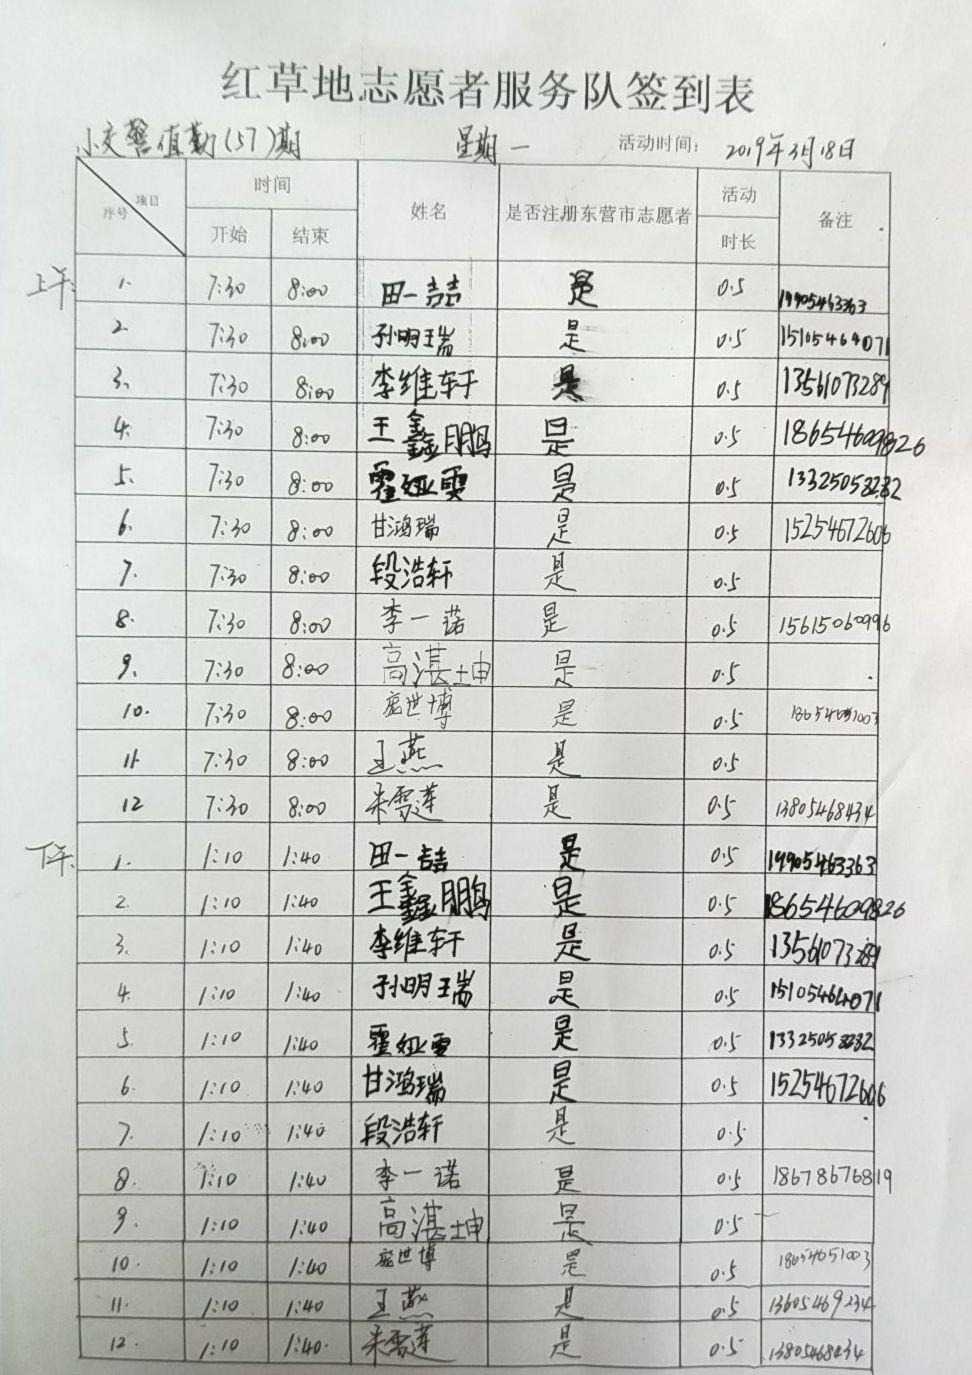 红草地志愿者服务队签到表
小交警值勤(57)期 星期一 活动时间: 2019年3月18日
序号 项目 时间 姓名 是否注册东营市志愿者 活动 备注
开始 结束 时长
上午 1. 7:30 8:00 田一喆 是 0.5 19905463363
2. 7:30 8:00 孙明瑞 是 0.5
3. 7:30 8:00 李维轩 是 0.5 13561073289
4. 7:30 8:00 王鑫鹏 是 0.5 18654609826
5. 7:30 8:00 霍娅雯 是 0.5 13325058282
6. 7:30 8:00 甘鸿瑞 是 0.5 15254672606
7. 7:30 8:00 段浩轩 是 0.5
8. 7:30 8:00 李一诺 是 0.5 15615060996
9. 7:30 8:00 高湛坤 是 0.5
10. 7:30 8:00 世博 是 0.5
11 7:30 8:00 王燕 是 0.5
12 7:30 8:00 朱雪莲 是 0.5 13805468434
下午. 1. 1:10 1:40 田一喆 是 0.5 19905463363
2. 1:10 1:40 王鑫鹏 是 0.5 18654609826
3. 1:10 1:40 李维轩 是 0.5 13561073289
4. 1:10 1:40 孙明瑞 是 0.5
5. 1:10 1:40 霍娅雯 是 0.5 13325058282
6. 1:10 1:40 甘鸿瑞 是 0.5 15254672606
7. 1:10 1:40 段浩轩 是 0.5
8. 1:10 1:40 李一诺 是 0.5 18678676819
9. 1:10 1:40 高湛坤 是 0.5
10. 1:10 1:40 世博 是 0.5 18654651003
11. 1:10 1:40 王燕 是 0.5 13605469234
12. 1:10 1:40. 朱雪莲 是 0.5 13805468434